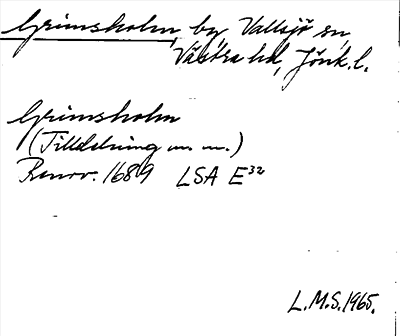 Grimsholm, by, Vallsjö sn,
Västra hd, Jönk. l.
Grimsholm
(Tilldelning m. m.)
Renov. 1689 LSA E³²
L.M.S. 1965.